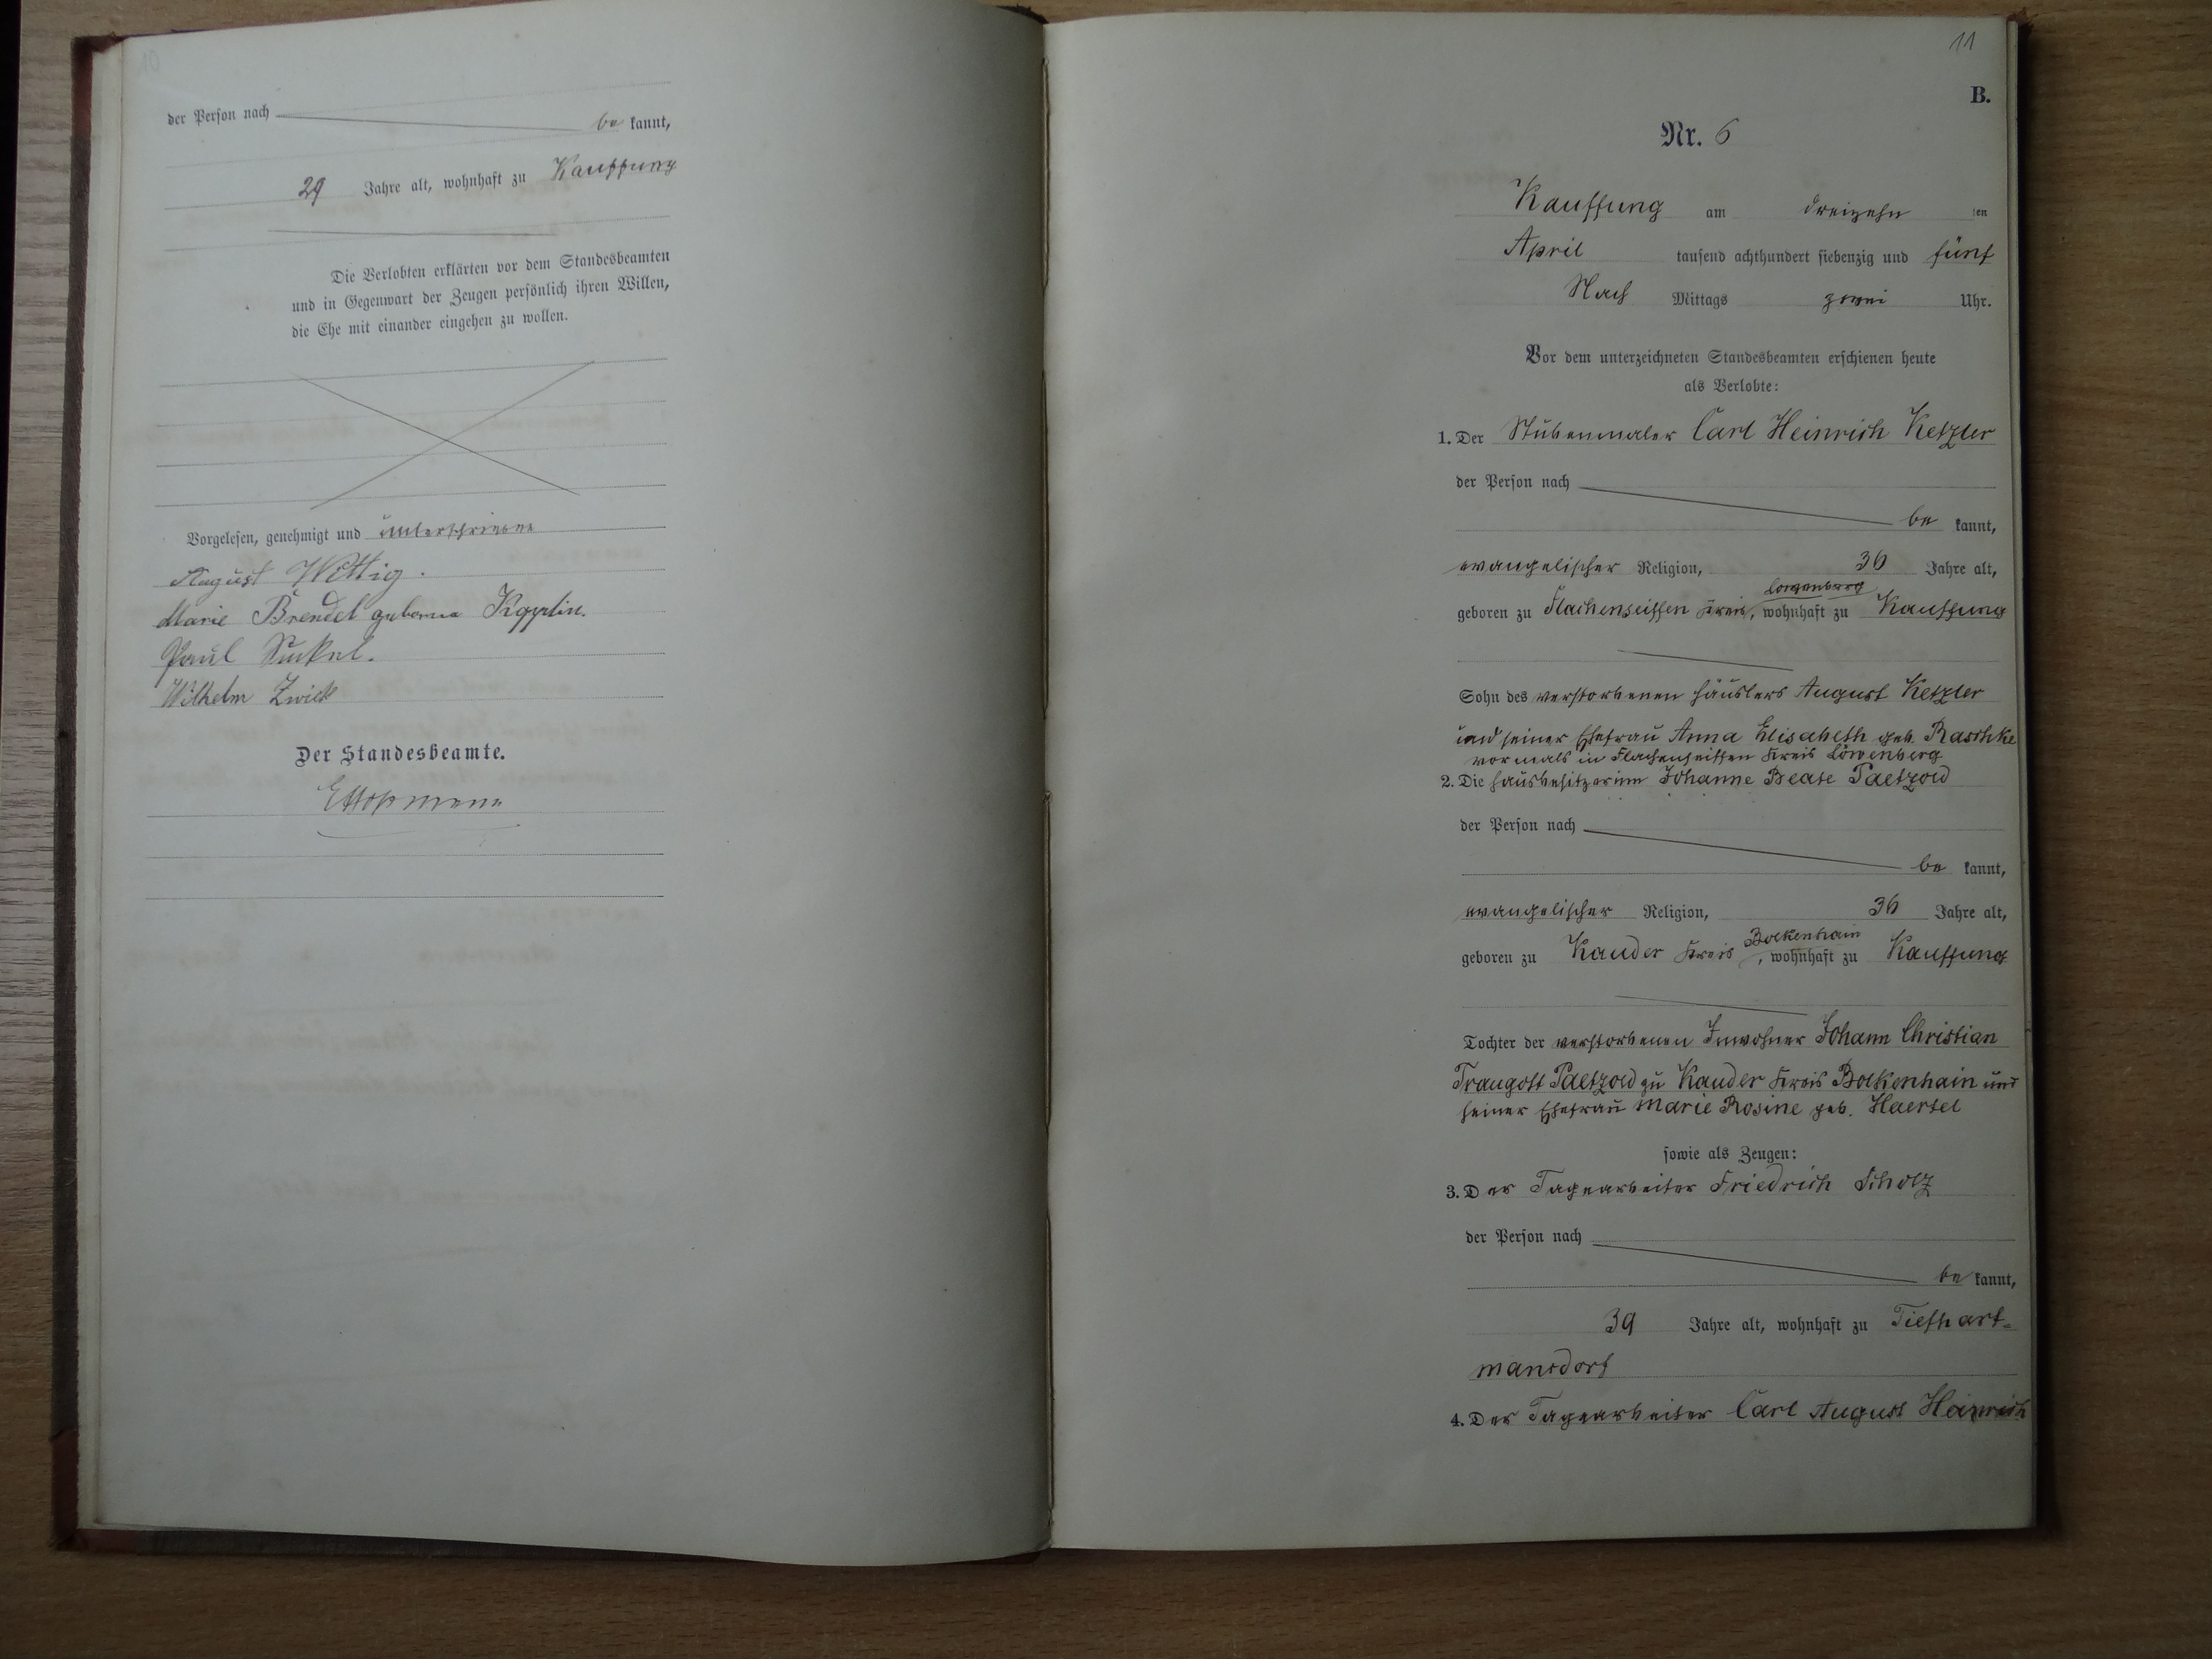 der Person nach be kannt,
29 Jahre alt, wohnhaft zu Kauffung
Die Verlobten erklärten vor dem Standesbeamten
und in Gegenwart der Zeugen persönlich ihren Willen,
die Ehe mit einander eingehen zu wollen.
Vorgelesen, genehmigt und unterschrieben
August Wittig.
Marie Brendel geborene
Paul
Wilhelm Zwick
Der Standesbeamte.
11
B.
Nr. 6
Kauffung am dreizehn ten
April tausend achthundert siebenzig und fünf
Nach Mittags zwei Uhr.
Vor dem unterzeichneten Standesbeamten erschienen heute
als Verlobte:
1. Der Stubenmaler Carl Heinrich Ketzler
der Person nach
be kannt,
evangelischer Religion, 36 Jahre alt,
Löwenberg
geboren zu Flachenseiffen Kreis, wohnhaft zu Kauffung
Sohn des verstorbenen Häuslers August Ketzler
und seiner Ehefrau Anna Elisabeth geb. Raschke
vormals in Flachenseiffen Kreis Löwenberg
2. Die Hausbesitzerinn Johanne Beate Paetzold
der Person nach
be kannt,
evangelischer Religion, 36 Jahre alt,
Bolkenhain
geboren zu Kauder Kreis, wohnhaft zu Kauffung
Tochter der verstorbenen Inwohner Johann Christian
Traugott Paetzold zu Kauder Kreis Bolkenhain und
seiner Ehefrau Marie Rosine geb. Haertel
sowie als Zeugen:
3. Der Tagearbeiter Friedrich Scholz
der Person nach
be kannt,
39 Jahre alt, wohnhaft zu Tiefhart-
mansdorf
4. Der Tagearbeiter Carl August Heinrich